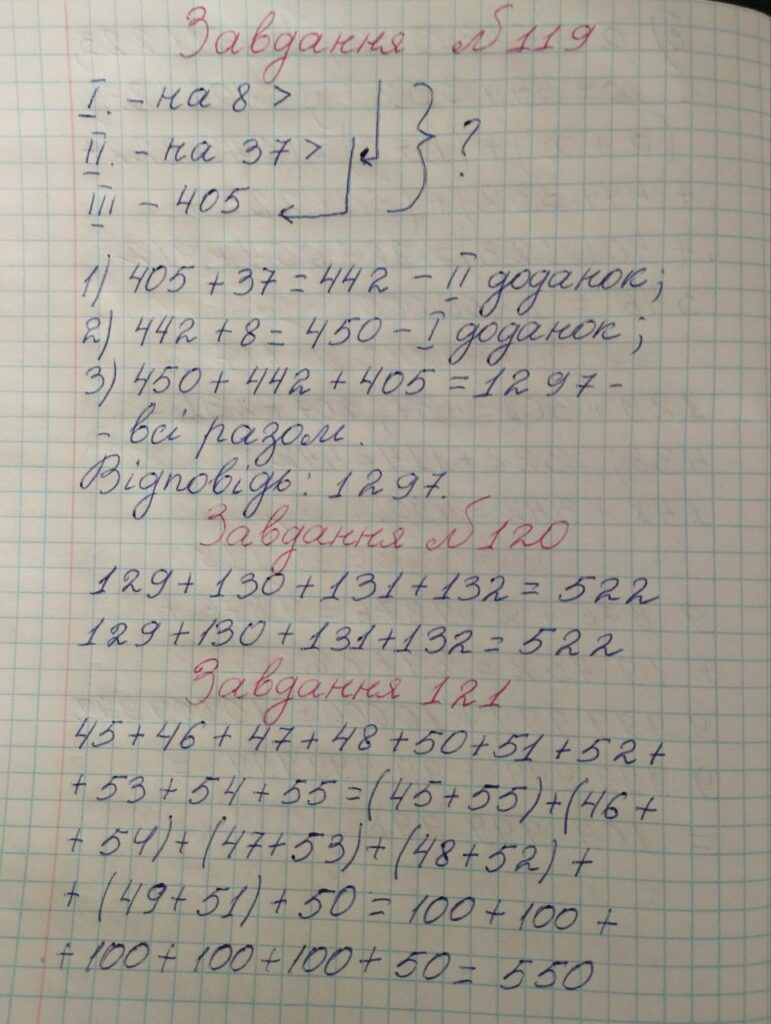 Завдання №119
I. - на 8 >
II. - на 37 > } ?
III - 405
1) 405 + 37 = 442 - II доданок;
2) 442 + 8 = 450 - I доданок;
3) 450 + 442 + 405 = 1297 -
- всі разом.
Відповідь: 1297.
Завдання №120
129 + 130 + 131 + 132 = 522
129 + 130 + 131 + 132 = 522
Завдання 121
45 + 46 + 47 + 48 + 50 + 51 + 52 +
+ 53 + 54 + 55 = (45 + 55) + (46 +
+ 54) + (47 + 53) + (48 + 52) +
+ (49 + 51) + 50 = 100 + 100 +
+ 100 + 100 + 100 + 50 = 550